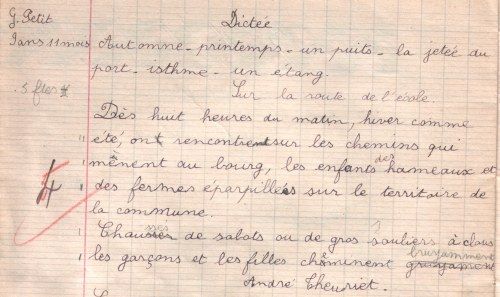 G. Petit Dictée
9 ans 11 mois Automne - printemps - un puits - la jetée du
port - isthme - un étang.
5 ftes
Sur la route de l'école.
Dès huit heures du matin, hiver comme
été, ont rencontrent sur les chemins qui
mènent au bourg, les enfants des hameaux et
4 des fermes éparpillés sur le territoire de
la commune.
Chaussés de sabots ou de gros souliers à clous
les garçons et les filles cheminent bruyamment
André Cheuriet.